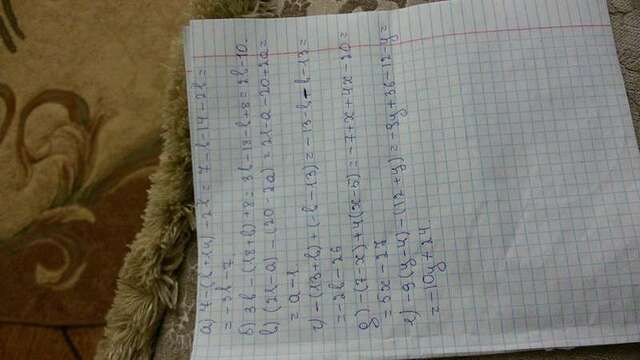 а) 7-(b+14)-2b = 7-b-14-2b =
= -3b-7.
б) 3b-(18+b)+8 = 3b-18-b+8 = 2b-10.
в) (21-a)-(20-2a) = 21-a-20+2a =
= a-1.
г) -(13+b)+(-b-13) = -13-b-b-13 =
= -2b-26
д) -(7-x)+4(x-5) = -7+x+4x-20 =
= 5x-27
е) -9(y-4)-(12+y) = -9y+36-12-y =
= -10y+24.